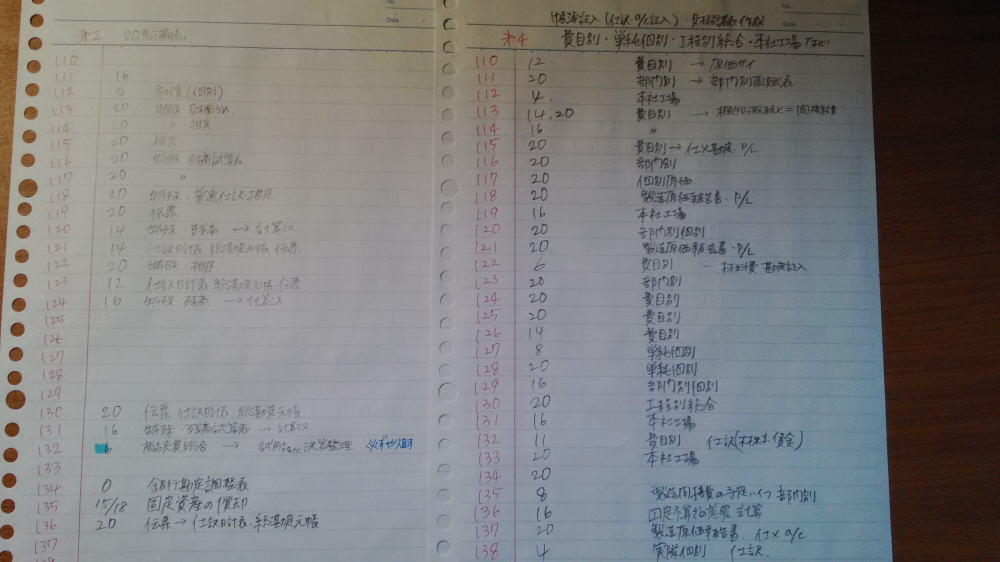 第2 20点満点
110
111 16
112 2
113 20 特殊
114 20 〃 推定
115 20 伝票
116 20 特殊 残高試算表
117 20 〃
118 20 特殊・普通仕訳 推定
119 20 伝票
120 14 特殊 → 計算ミス
121 14 仕訳日計表 総勘定元帳 伝票
122 20 特殊・推定
123 12 仕訳日計表 総勘定元帳・伝票
124 16 特殊・残高 → 計算ミス
125
126
127
128
129
130 20 伝票 仕訳日計表、総勘定元帳
131 16 特殊・残高試算表 → 計算ミス
132 6 商品売買総合 → 試用品etc 決算整理 必ずやり直す
133
134 0 銀行勘定調整表
135 15/18 固定資産の償却
136 20 伝票 → 仕訳日計表、総勘定元帳
137
帳簿記入(仕訳・a/c記入)・財務諸表作成
第4 費目別・単純個別・工程別総合・本社工場 など
110 12 費目別 →
111 20 部門別 → 部門別配賦表
112 4 本社工場
113 14.20 費目別 →
114 16 〃
115 20 費目別 → 仕×勘定・P/L
116 20 部門別
117 20 個別原価
118 20 製造原価報告書・P/L
119 16 本社工場
120 20 部門別個別
121 20 製造原価報告書・P/L
122 6 費目別 - 材料費 勘定記入
123 20 部門別
124 20 費目別
125 20 費目別
126 14 費目別
127 8 単純個別
128 20 単純個別
129 16 部門別個別
130 20 工程別総合
131 16 本社工場
132 11 費目別 仕訳(材料・賃金)
133 20 本社工場
134 20
135 8 製造間接費の予定 部門別
136 16 固定予算 差異 計算
137 20 製造原価報告書、仕× a/c
138 4 実際個別 仕訳